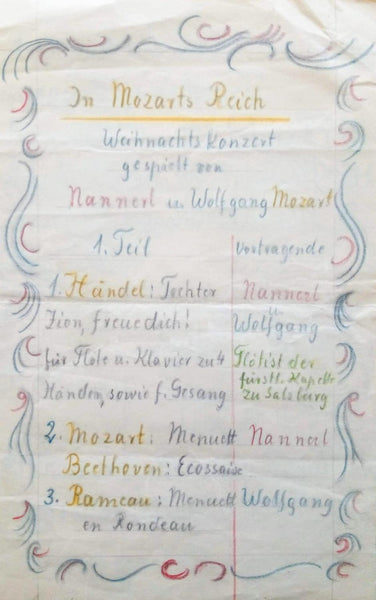 In Mozarts Reich
Weihnachts Konzert
gespielt von
Nannerl u. Wolfgang Mozart
1. Teil
Vortragende
1. Händel: Tochter
Zion, freue dich!
für Flöte u. Klavier zu 4
Händen, sowie f. Gesang
Nannerl
u.
Wolfgang
Flötist der
fürstl. Kapelle
zu Salzburg
2. Mozart: Menuett Nannerl
Beethoven: Ecossaise
3. Rameau: Menuett Wolfgang
en Rondeau